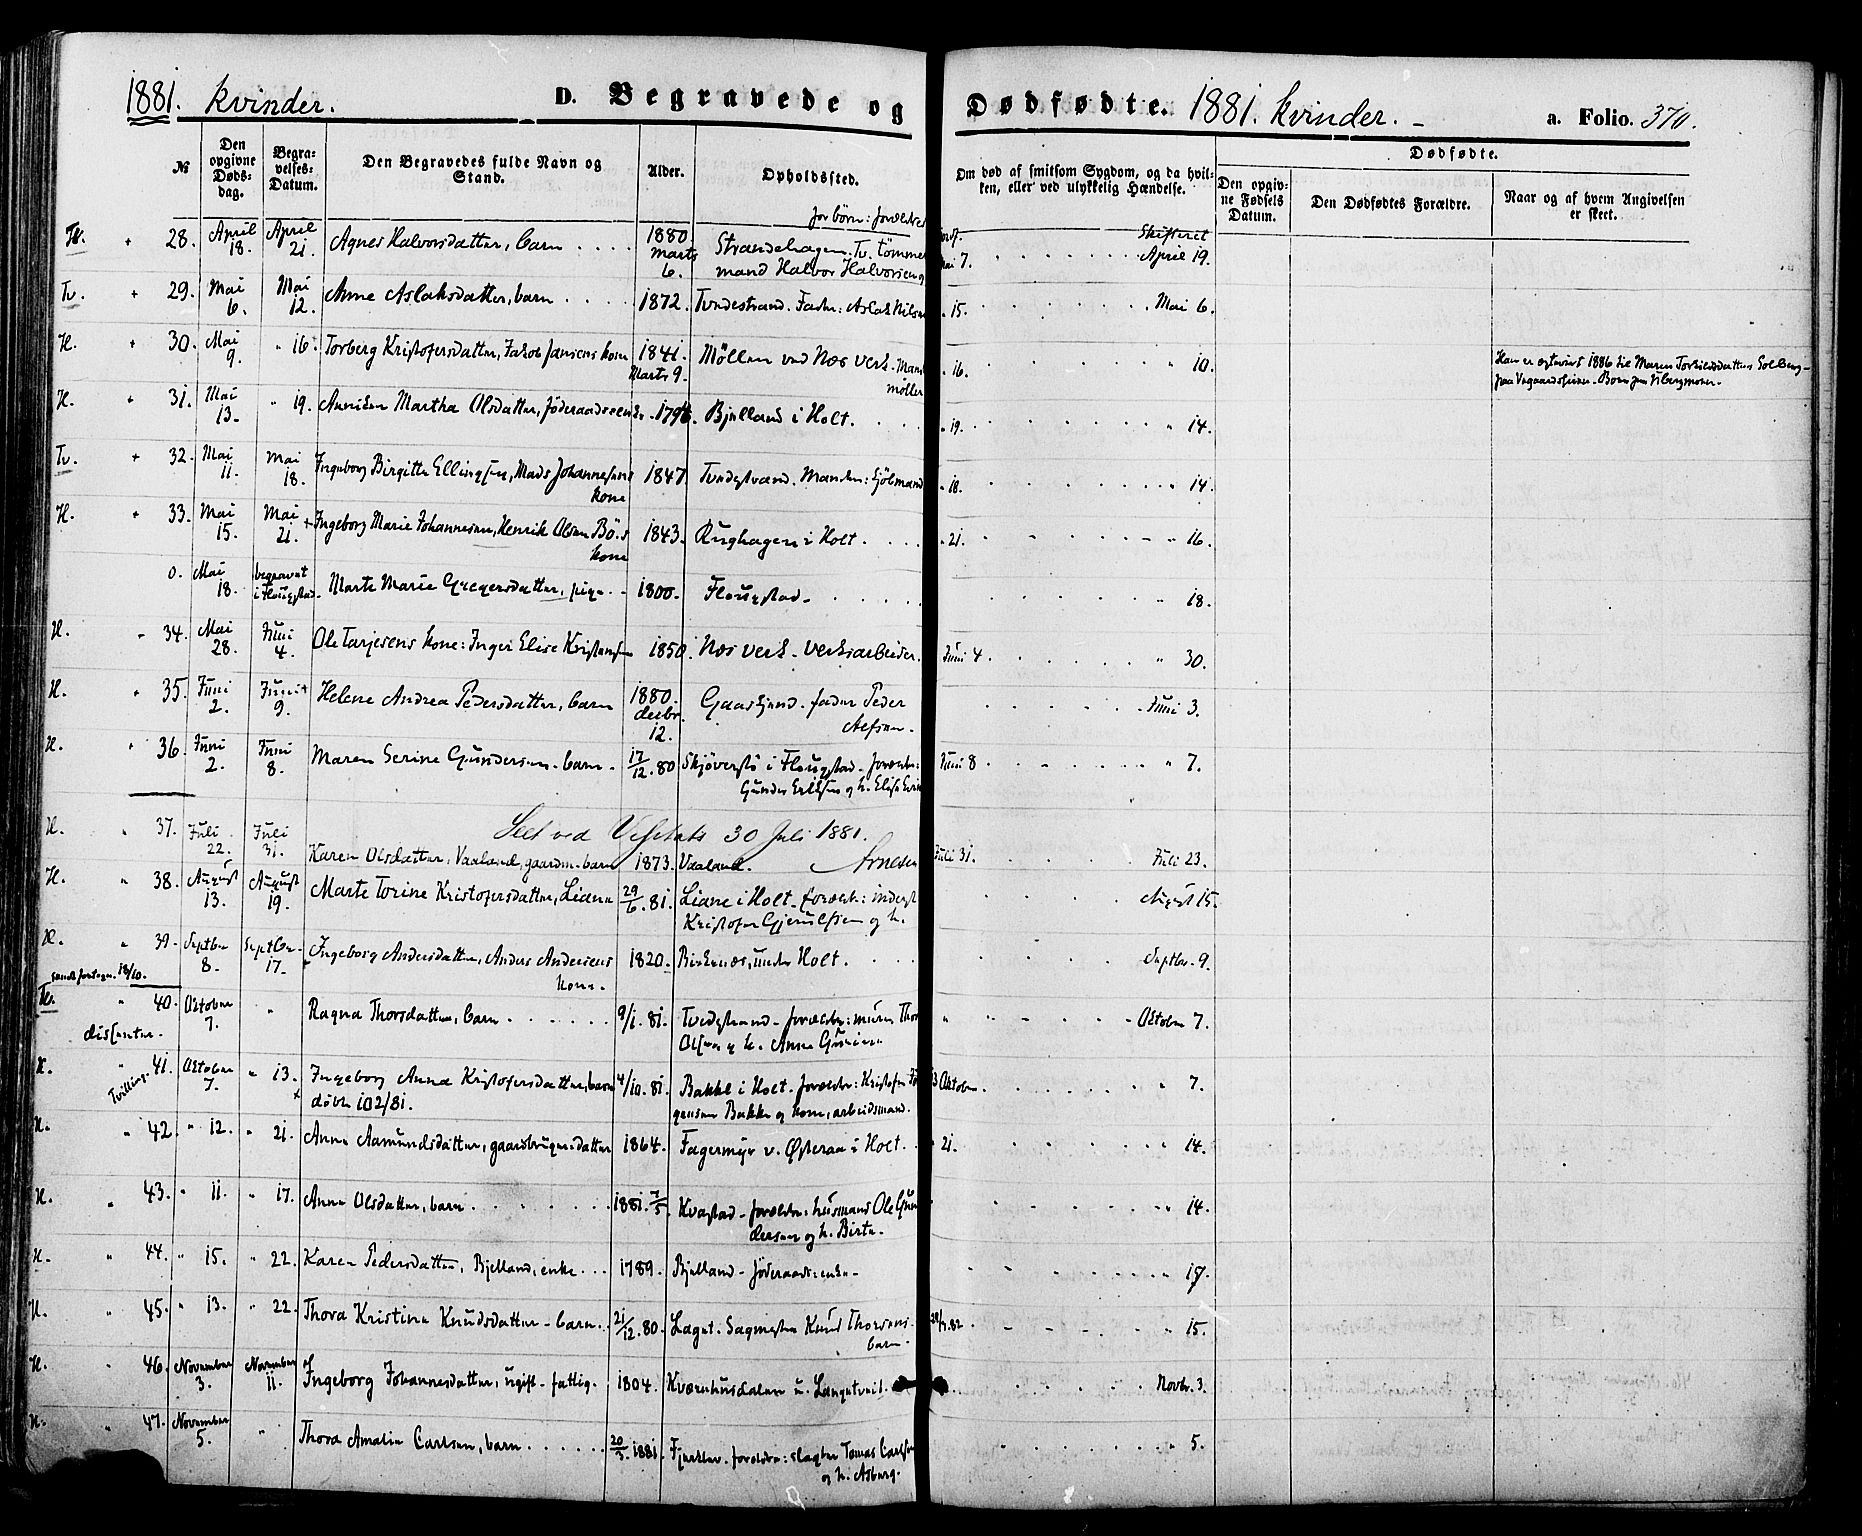 1881. kvinder. D. Begravede og Dødfødte. 1881. kvinder. a. Folio. 370.
№ Den opgivne Døds-dag. Begra-velses-Datum. Den Begravedes fulde Navn og Stand. Alder. Opholdssted. Om død af smitsom Sygdom, og da hvil-ken, eller ved ulykkelig Hændelse. Dødfødte.
Den opgiv-ne Fødsels Datum. Den Dødfødtes Forældre. Naar og af hvem Angivelsen er skeet.
for børn: forældre
Skifteret
28. April 18. April 21. Agnes Halvorsdatter, barn 1880 Marts 6. Strandehagen. Tv. tømmer Mai 7. April 19.
mand Halvor Halvorsen og
Tv. + 29. Mai 6. Mai 12. Anne Aslaksdatter, barn 1872. Tvedestrand. Fader: Aslak Nilsen " 15. Mai 6.
H. + 30. Mai 9. " 16. Torberg Kristofersdatter, Jakob Jansens kone 1841. Marts 9. Møllen ved Næs verk. Mand " 16. " 10.
møller
Han er egteviet 1886 til Maren Torkildsdatter Solberg
H. + 31. Mai 13. " 19. Anniken Martha Olsdatter, føderaadsenke 1796. Bjelland i Holt. " 19. " 14.
Tv. + 32. Mai 11. Mai 18. Ingeborg Birgitte Ellingsen, Mads Johannesens 1847 Tvedestrand. Manden: Sjømand " 18. " 14.
kone
H. + 33. Mai 15. Mai 21. + Ingeborg Marie Johannesen, Henrik Olsen Bö.s 1843. Rughagen i Holt. " 21. " 16.
kone
0. Mai 18. begravet i Flougstad. Marte Marie Gregersdatter, pige 1800. Flougstad. " 18.
H. " 34. Mai 28. Juni 4. Ole Tarjesens kone: Inger Elise Kristensen 1850. Næs verk. verksarbeider. Juni 4. " 30.
H. " 35. Juni 2. Juni 9. Helene Andrea Pedersdatter, barn 1880. decbr. 12. Gaaslund. fader Peder Juni 3.
H. " 36. Juni 2. Juni 8. Maren Serine Gundersen. barn. 17/12. 80 i Flougstad. forældre: Juni 8 " 7.
Gunder Eriksen og h. Elise
Seet ved Visitats 30 Juli 1881.
Arnesen
H. " 37. Juli 22. Juli 31. Karen Olsdatter, Vaaland, gaardm. barn 1873. Vaaland. Juli 31. Juli 23.
H. " 38. August 13. August 19. Marte Torine Kristofersdatter, Liane 29/6. 81. Liane i Holt. forældr: inderst August 15.
Kristofer Gjerulfsen og h.
H. " 39. Septbr 8. Septbr 17. Ingeborg Andersdatter, Anders Andersens 1820. under Holt. Septbr. 9.
kone.
Tv. " 40. Oktober 7. " Ragna Thorsdatter, barn 9/1. 81. Tvedestrand. forældre: murer Thor " Oktober 7.
dissenter. Olsen og h. Anne
H. Tvilling. " 41. Oktober 7. " 13. Ingeborg Anna Kristofersdatter, barn 4/10. 81. Bakke i Holt. forældr: Kristofer 13 Oktober " 7.
døbt 102/81. gensen Bakke og kone, arbeidsmand.
H. " 42. " 12. " 21. Anne Aamundsdatter, gaardbruger:datter 1864. Fagermyr v. Østeraa i Holt. " 21. " 14.
H. " 43. " 11. " 17. Anne Olsdatter, barn 1881. 7/5. Kvastad. forældr: husmand Ole Gun " 14.
dersen og h. Birte.
H. " 44. " 15. " 22. Karen Pedersdatter, Bjelland, enke 1789. Bjelland. føderaads:enke. " 17.
H. " 45. " 13. " 22. Thora Kristine Knudsdatter. barn. 21/12. 80. Laget. Sagmester Knud Thorsens. " 15.
barn.
H. " 46. November 3. November 11. Ingeborg Johannesdatter, ugift. fattig. 1804. Kværnhusdalen u. Langetveit. Novbr. 3.
H. " 47. November 5. " Thora Amalie Carlsen, barn 20/3. 1881. forældre: slagter Tomas Carlsen " 5.
og h. Asborg.